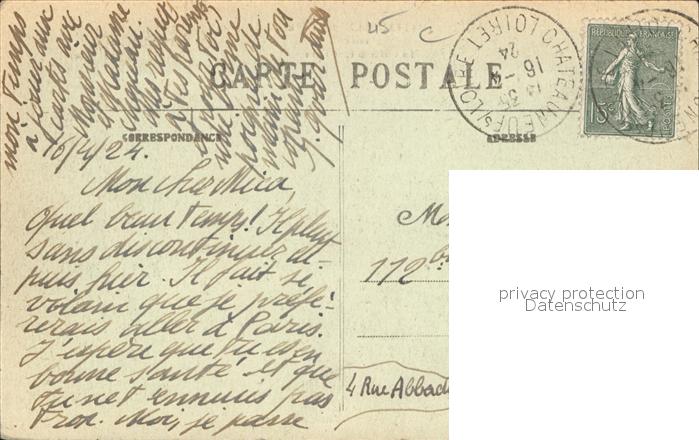 45 C
CARTE POSTALE
CORRESPONDANCE
ADRESSE
CHATEAUNEUF S LOIRE LOIRET
16 - 4
24
RÉPUBLIQUE FRANÇAISE
15c
POSTES
16/4/24.
Mon cher Mica,
Quel beau temps! Il pleut
sans discontinuer de-
puis hier. Il fait si
vilain que je préfé-
rerais aller à Paris.
J'espère que tu es en
bonne santé et que
tu ne t'ennuies pas
trop. Moi, je passe
mon temps
à jouer aux
cartes avec
Monsieur
et Madame
tes parents
une bonne
poignée de
main de ton
copain
M
112 bis
4 Rue Abbad
privacy protection
Datenschutz